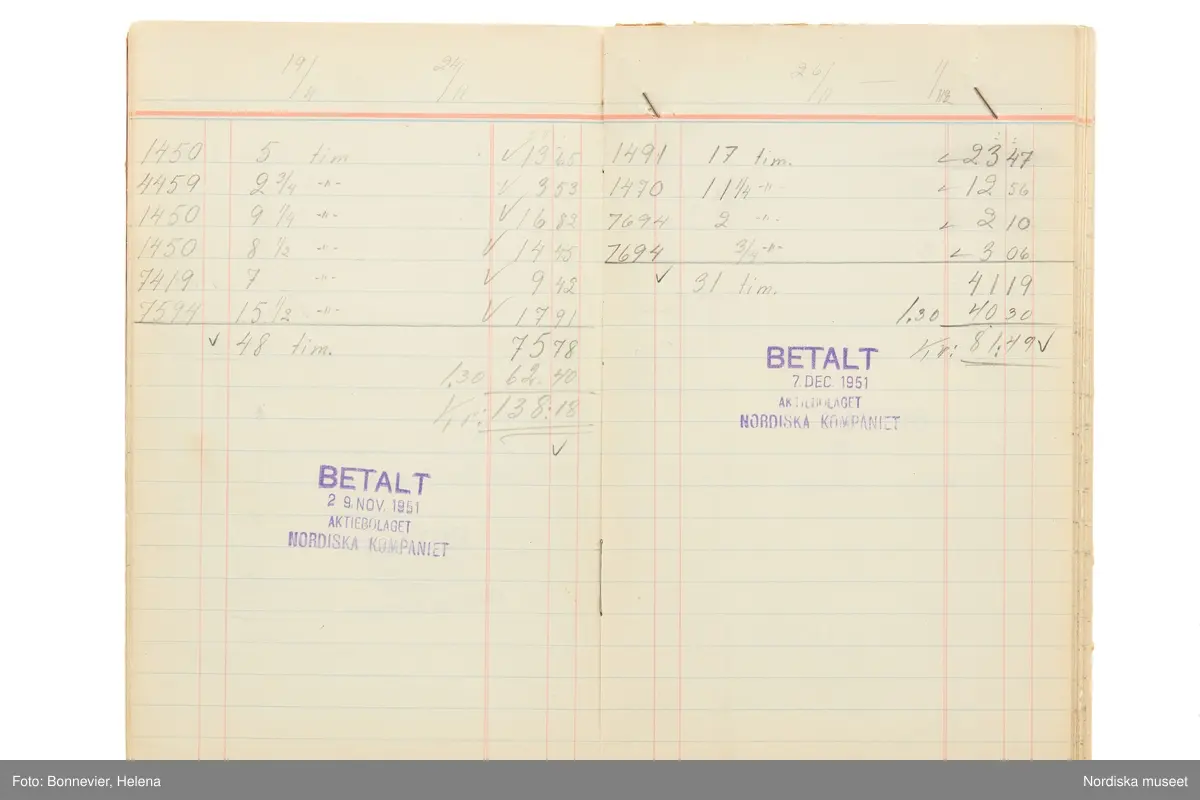 19/11 24/11
1450 5 tim ✓ 13 65
4459 2 3/4 -"- ✓ 3 53
1450 9 1/4 -"- ✓ 16 82
1450 8 1/2 -"- ✓ 14 45
7419 7 -"- ✓ 9 42
7594 15 1/2 -"- ✓ 17 91
✓ 48 tim. 75 78
1.30 62. 40
Kr: 138:18
✓
BETALT
29. NOV. 1951
AKTIEBOLAGET
NORDISKA KOMPANIET
26/11 — 1/12
1491 17 tim. ✓ 23 47
1470 11 1/4 -"- ✓ 12 56
7694 2 -"- ✓ 2 10
7694 3/4 -"- ✓ 3 06
✓ 31 tim. 41 19
1.30 40 30
Kr: 81:49 ✓
BETALT
7. DEC. 1951
AKTIEBOLAGET
NORDISKA KOMPANIET
Foto: Bonnevier, Helena
Nordiska museet